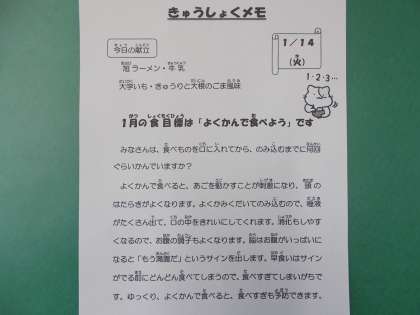 きゅうしょくメモ
今日の献立
1/14
(火)
旭ラーメン・牛乳
大学いも・きゅうりと大根のごま風味
1・2・3…
1月の食目標は「よくかんで食べよう」です
みなさんは、食べものを口に入れてから、のみ込むまでに何回
ぐらいかんでいますか?
よくかんで食べると、あごを動かすことが刺激になり、頭の
はたらきがよくなります。よくかみくだいてのみ込むので、唾液
がたくさん出て、口の中をきれいにしてくれます。消化もしやす
くなるので、お腹の調子もよくなります。脳はお腹がいっぱいに
なると「もう満腹だ」というサインを出します。早食いはサイン
がでる前にどんどん食べてしまうので、食べすぎてしまいがちで
す。ゆっくり、よくかんで食べると、食べすぎも予防できます。